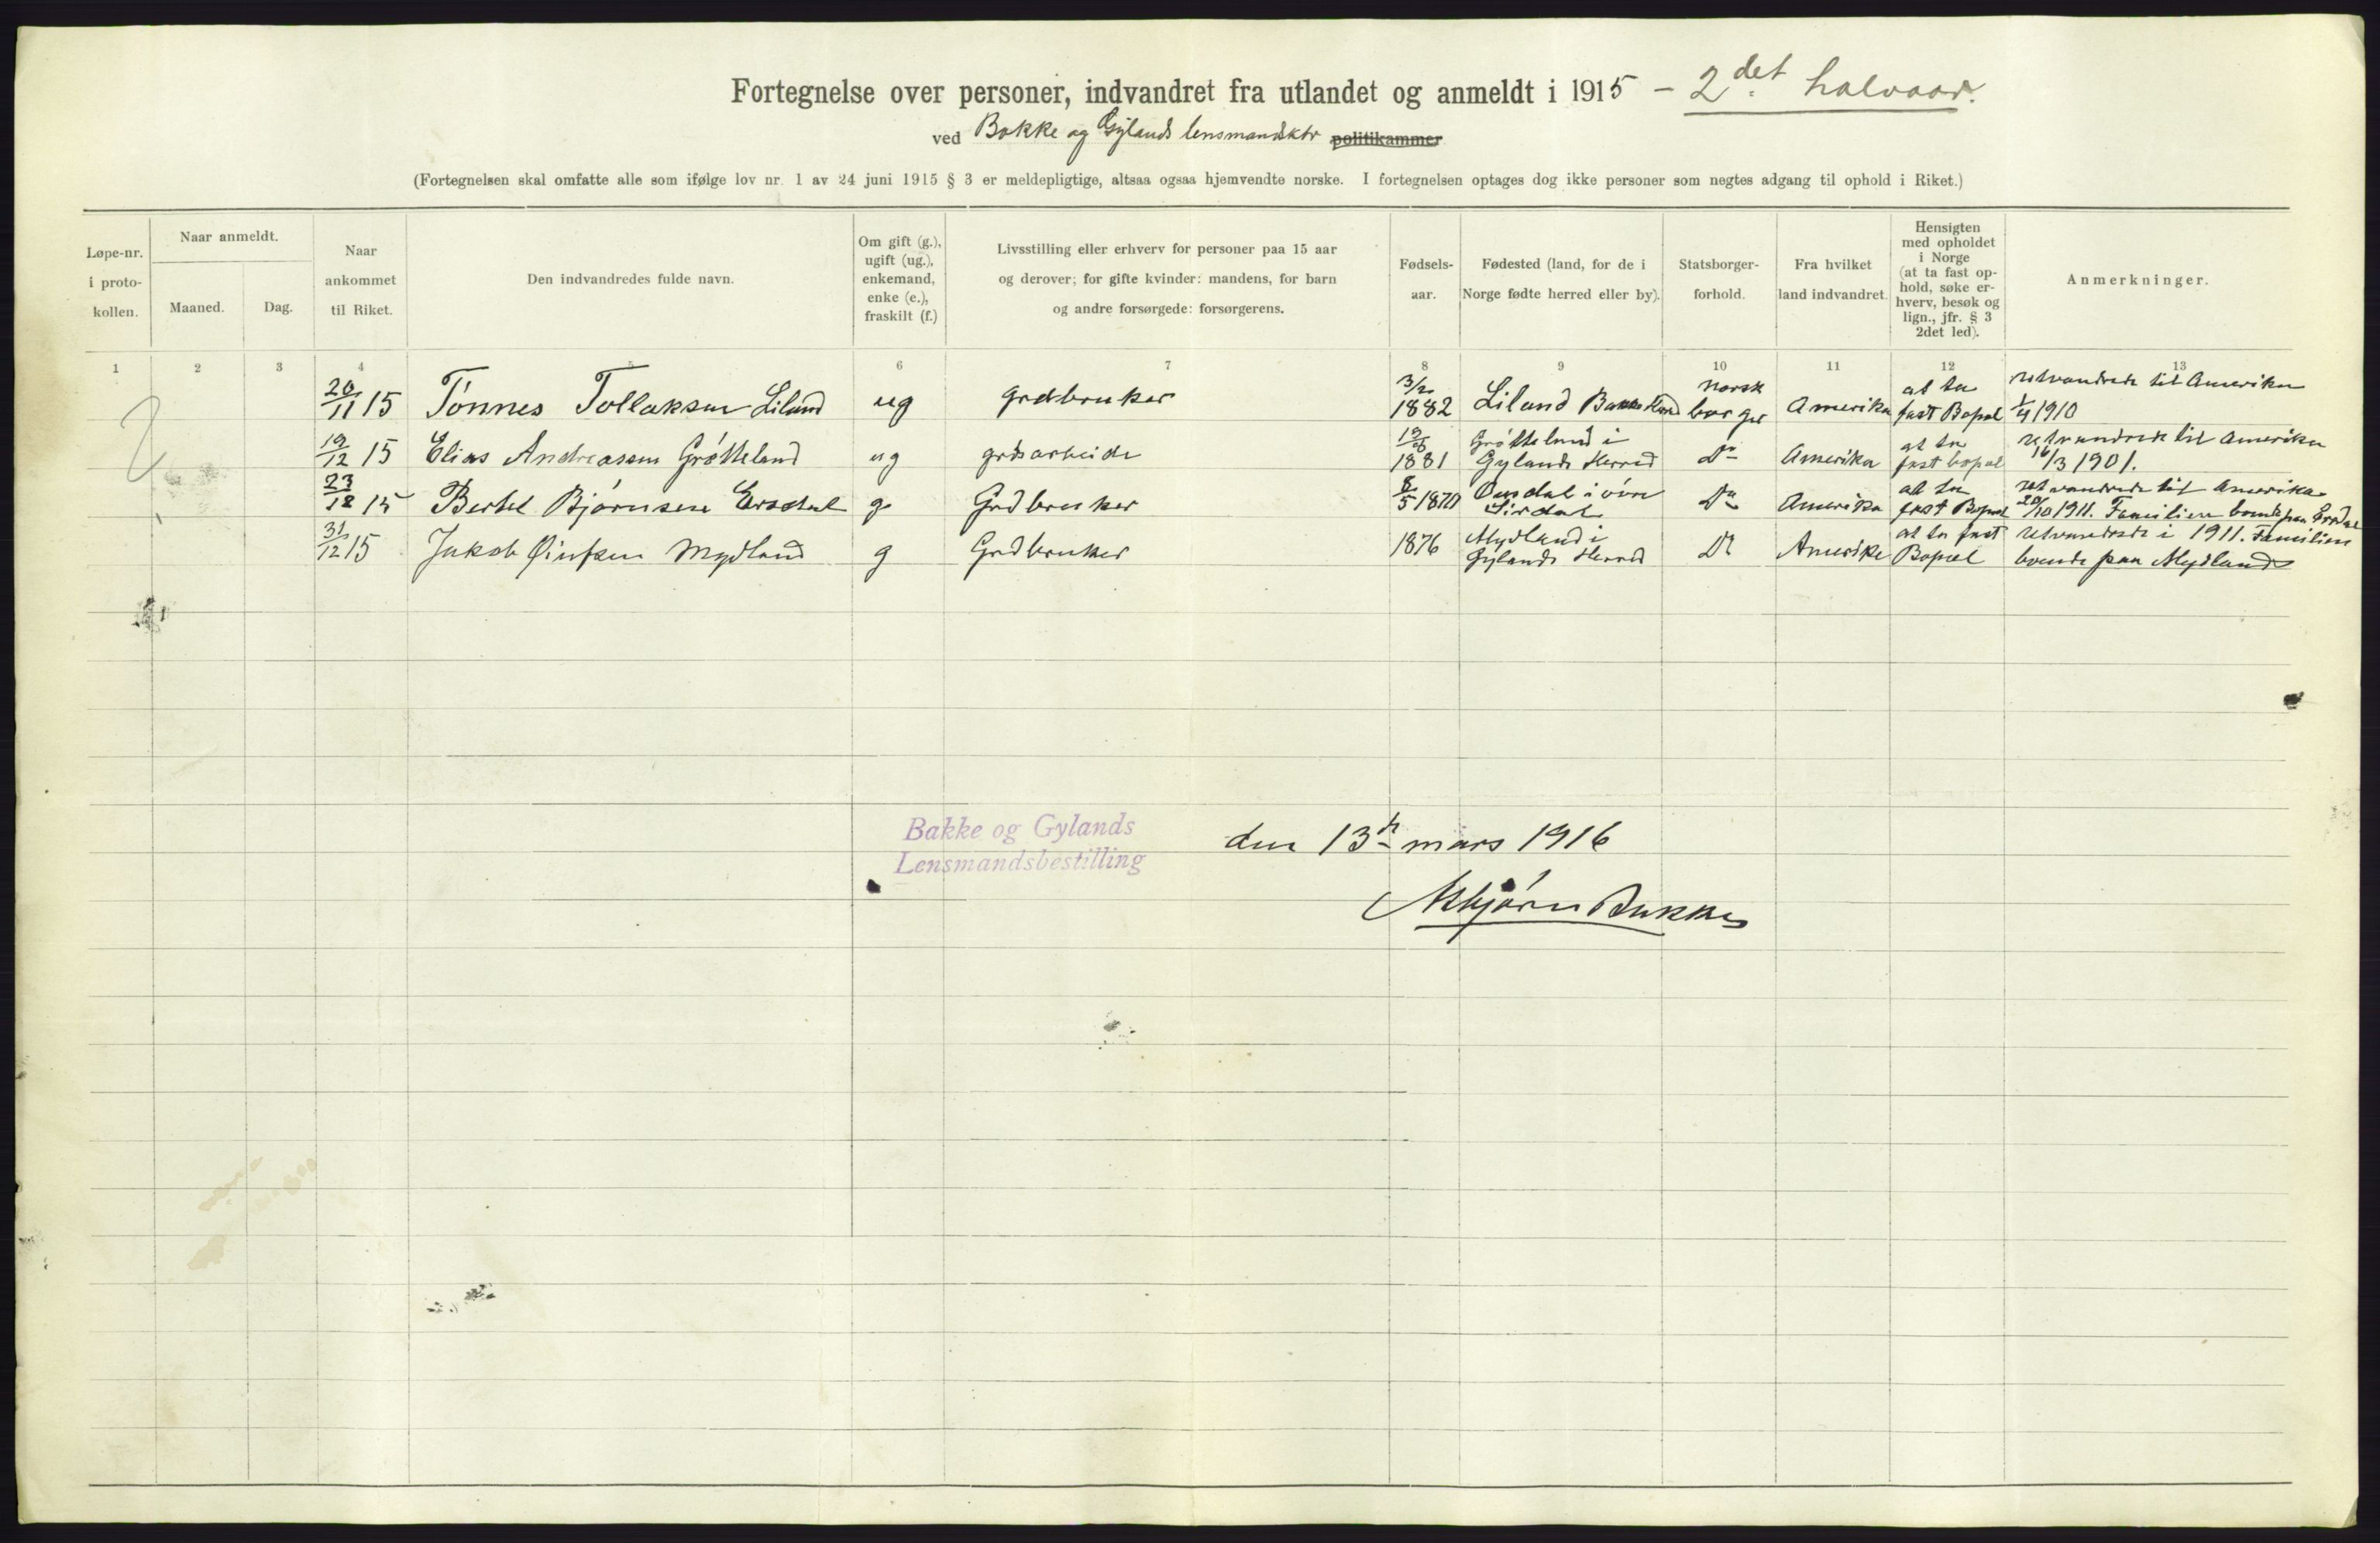 Fortegnelse over personer, indvandret fra utlandet og anmeldt i 1915 – 2det halvaar.
ved Bakke og Gylands lensmandsktr politikammer
(Fortegnelsen skal omfatte alle som ifølge lov nr. 1 av 24 juni 1915 § 3 er meldepligtige, altsaa ogsaa hjemvendte norske. I fortegnelsen optages dog ikke personer som negtes adgang til ophold i Riket.)
Løpe-nr. i proto-kollen.
Naar anmeldt.
Maaned.
Dag.
Naar ankommet til Riket.
Den indvandredes fulde navn.
Om gift (g.), ugift (ug.), enkemand, enke (e.), fraskilt (f.)
Livsstilling eller erhverv for personer paa 15 aar og derover; for gifte kvinder: mandens, for barn og andre forsørgede: forsørgerens.
Fødsels-aar.
Fødested (land, for de i Norge fødte herred eller by).
Statsborger-forhold.
Fra hvilket land indvandret.
Hensigten med opholdet i Norge (at ta fast op-hold, søke er-hverv, besøk og lign., jfr. § 3 2det led).
Anmerkninger.
1 2 3 4 5 6 7 8 9 10 11 12 13
20/11 15 Tønnes Tollaksen Liland ug grdbruker 3/2 1882 Liland Bakke Herred norsk borger Amerika at ta fast Bopæl utvandrede til Amerika 1/4 1910
19/12 15 Elias Andreassen Grøtteland ug grdsarbeide 1881 Grøtteland i Gylands Herred Do Amerika at ta fast bopæl utvandrede til Amerika 16/3 1901.
23/12 15 Bertel Bjørnsen Ersdal g Grdbruker 8/5 1870 i øvre Sirdal Do Amerika at ta fast Bopæl utvandrede til Amerika 20/10 1911. Familien boende paa Ersdal
31/12 15 Jakob Mydland g Grdbruker 1876 Mydland i Gylands Herred Do Amerika at ta fast Bopæl utvandrede i 1911. Familien boende paa Mydland
Bakke og Gylands
Lensmandsbestilling
den 13de mars 1916
Asbjørn Bakke